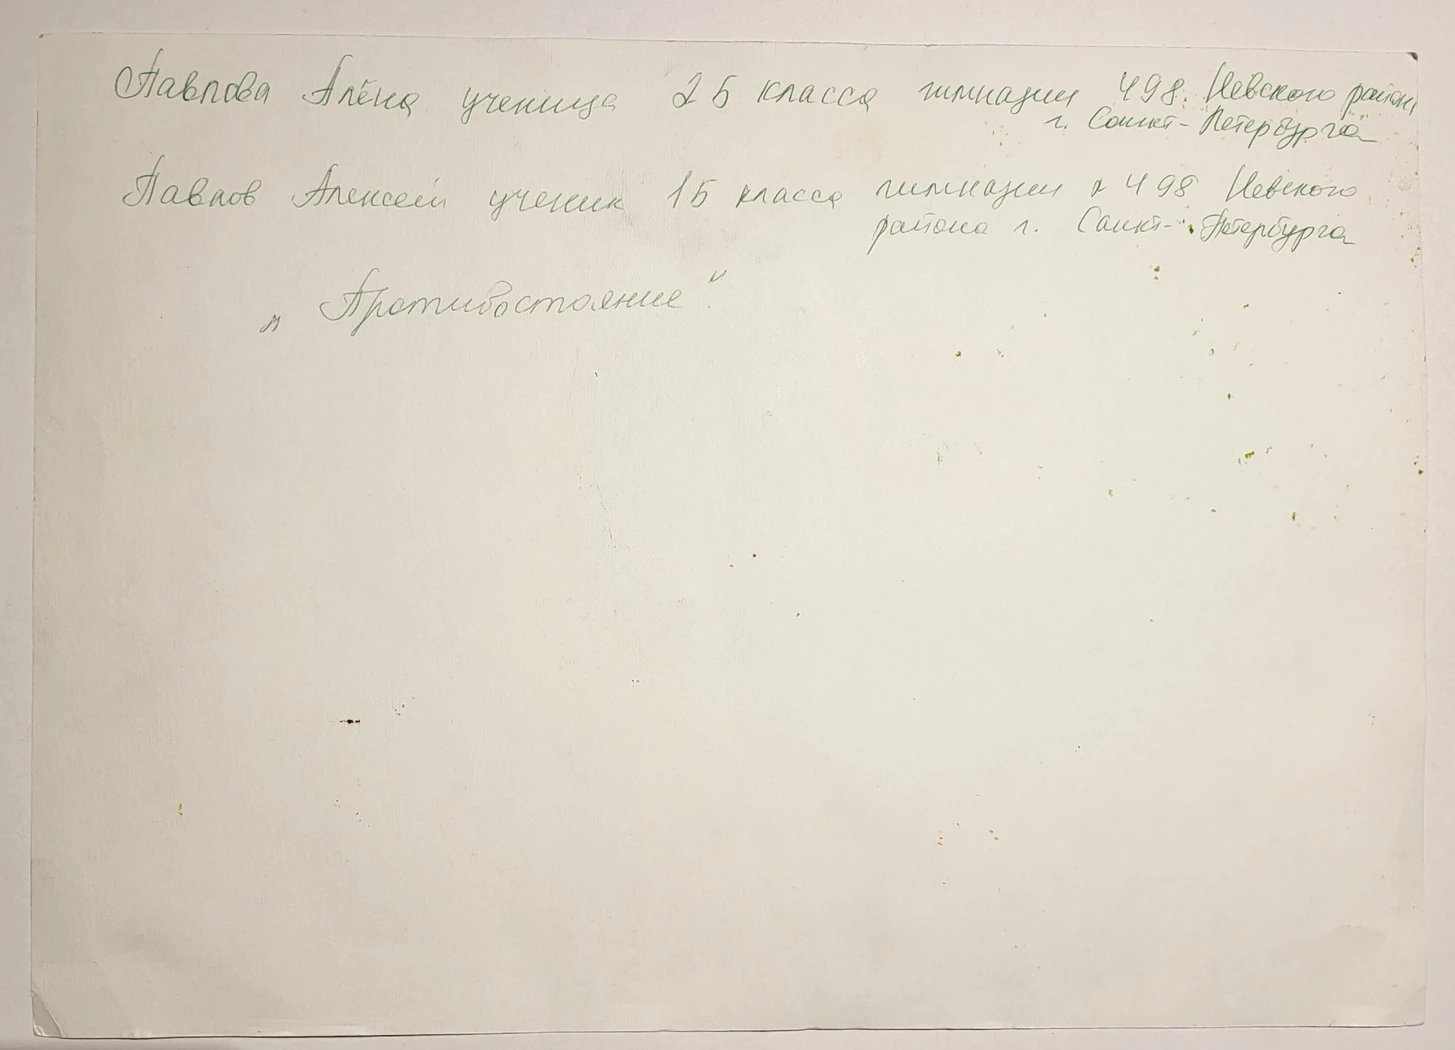 Павлова Алёна ученица 2 Б класса гимназии 498 Невского района
г. Санкт-Петербурга
Павлов Алексей ученик 1 Б класса гимназии 498 Невского
района г. Санкт-Петербурга
„Противостояние".